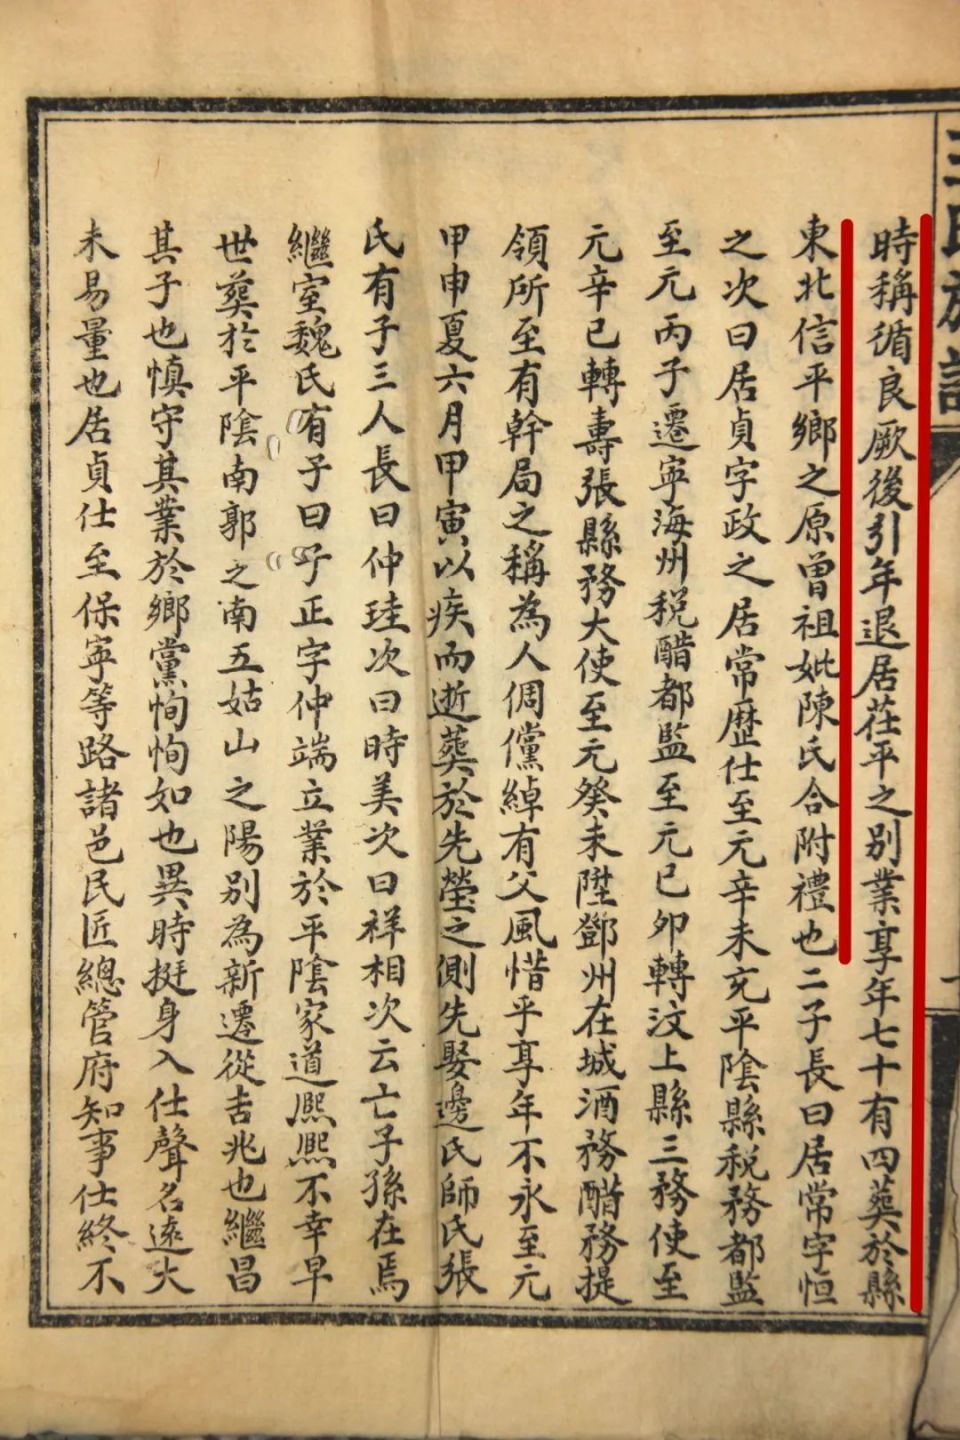 時稱循良厥後引年退居茌平之别業享年七十有四葬於縣
東北信平鄉之原曾祖妣陳氏合附禮也二子長曰居常字恒
之次曰居貞字政之居常歷仕至元辛未充平陰縣税務都監
至元丙子遷寧海州税醋都監至元已夘轉汶上縣三務使至
元辛已轉壽張縣務大使至元癸未陞鄧州在城酒務醋務提
領所至有幹局之稱為人倜儻綽有父風惜乎享年不永至元
甲申夏六月甲寅以疾而逝葬於先塋之側先娶邊氏師氏張
氏有子三人長曰仲珪次曰時美次曰祥相次云亡子孫在焉
繼室魏氏有子曰 正字仲端立業於平陰家道熙熙不幸早
世葬於平陰南郭之南五姑山之陽别為新遷從吉兆也繼昌
其子也慎守其業於鄉黨恂恂如也異時挺身入仕聲名遠大
未易量也居貞仕至保寧等路諸邑民匠總管府知事仕終不